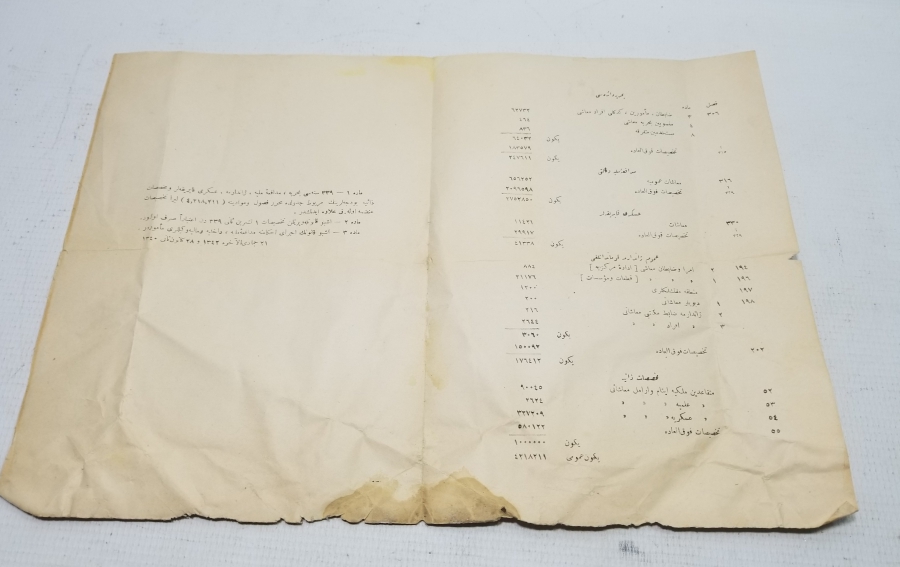 بحریه دائره‌سی
فصل ماده
٣٠٦ ٣ ضابطان ، مأمورین ، کدکلی افراد معاشی ٦٢٧٣٢
معاشی ٤٦٤
٨ مستخدمین متفرقه ٨٣٦
یکون ٦٤٠٣٢
تخصیصات فوق العاده ١٨٣٥٧٩
یکون ٢٤٧٦١١
مدافعه ملیه وکالتی
٣١٦ معاشات عمومیه ٦٥٦٢٥٢
تخصیصات فوق العاده ٢٠٩٦٥٩٨
یکون ٢٧٥٢٨٥٠
عسکری فابریقه‌لر
٣٣٠ معاشات ١١٤٢١
تخصیصات فوق العاده ٢٩٩١٧
یکون ٤١٣٣٨
عموم ژاندارمه قوماندانلغی
١٩٤ ٢ امرا وضابطان معاشی [ ادارۀ مرکزیه ] ٨٨٤
١٩٦ ١ » » » [ قطعات ومؤسسات ] ٢١١٧٦
١٩٧ منطقه مفتشلکلری ١٢٠٠
١٩٨ ٩ دپویو معاشاتی ٢٠٠
٢ ژاندارمه ضابط مکتبی معاشاتی ٢١٦
٣ » افراد » » ٢٦٤٤
یکون
٢٠٢ تخصیصات فوق العاده ١٥٠٠٩٣
یکون ١٧٦٤١٣
مخصصات ذاتیه
٥٢ متقاعدین ملکیه ایتام وارامل معاشاتی ٩٠٠٤٥
٥٣ » علمیه » » » ٢٦٢٤
٥٤ » عسکریه » » » ٣٢٧٢٠٩
٥٥ تخصیصات فوق العاده ٥٨٠١٢٢
یکون ١٠٠٠٠٠٠
یکون عمومی ٤٢١٨٢١١
ماده ١ — ٣٣٩ سنه‌سی بحریه ، مدافعۀ ملیه ، ژاندارمه ، عسکری فابریقه‌لر ومخصصات
ذاتیه بودجه‌لرینک مربوط جدولده محرر فصول وموادینه ( ٤,٢١٨,٢١١ ) لیرا تخصیصات
منضمه اوله‌رق علاوه ایدلمشدر .
ماده ٢ — اشبو قانونله ویریلن تخصیصات ١ تشرین ثانی ٣٣٩ دن اعتباراً صرف اولنور
ماده ٣ — اشبو قانونک اجرای احکامنه مدافعۀ ملیه ، داخلیه ومالیه وکیللری مأموردر .
٢١ جمادی الآخره ١٣٤٢ و ٢٨ کانون ثانی ١٣٤٠